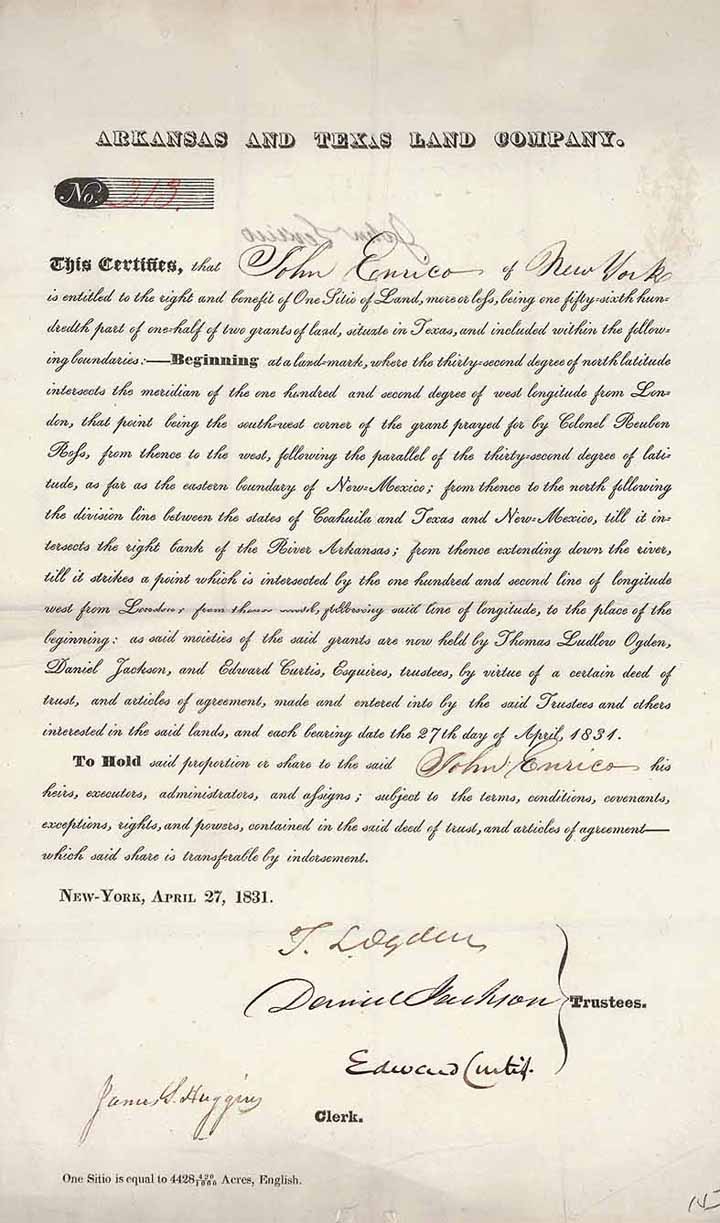 ARKANSAS AND TEXAS LAND COMPANY.
No. 313.
John Enrico
This Certifies, that John Enrico of New York
is entitled to the right and benefit of One Sitio of Land, more or less, being one fifty-sixth hun-
dredth part of one-half of two grants of land, situate in Texas, and included within the follow-
ing boundaries:—Beginning at a land-mark, where the thirty-second degree of north latitude
intersects the meridian of the one hundred and second degree of west longitude from Lon-
don, that point being the south-west corner of the grant prayed for by Colonel Reuben
Ross, from thence to the west, following the parallel of the thirty-second degree of lati-
tude, as far as the eastern boundary of New-Mexico; from thence to the north following
the division line between the states of Coahuila and Texas and New-Mexico, till it in-
tersects the right bank of the River Arkansas; from thence extending down the river,
till it strikes a point which is intersected by the one hundred and second line of longitude
west from London; from thence south, following said line of longitude, to the place of the
beginning: as said moieties of the said grants are now held by Thomas Ludlow Ogden,
Daniel Jackson, and Edward Curtis, Esquires, trustees, by virtue of a certain deed of
trust, and articles of agreement, made and entered into by the said Trustees and others
interested in the said lands, and each bearing date the 27th day of April, 1831.
To Hold said proportion or share to the said John Enrico his
heirs, executors, administrators, and assigns; subject to the terms, conditions, covenants,
exceptions, rights, and powers, contained in the said deed of trust, and articles of agreement—
which said share is transferable by indorsement.
NEW-YORK, APRIL 27, 1831.
T. L. Ogden
Daniel Jackson
Trustees.
Edward Curtis.
James S. Huggins
Clerk.
One Sitio is equal to 4428 420/1000 Acres, English.
15